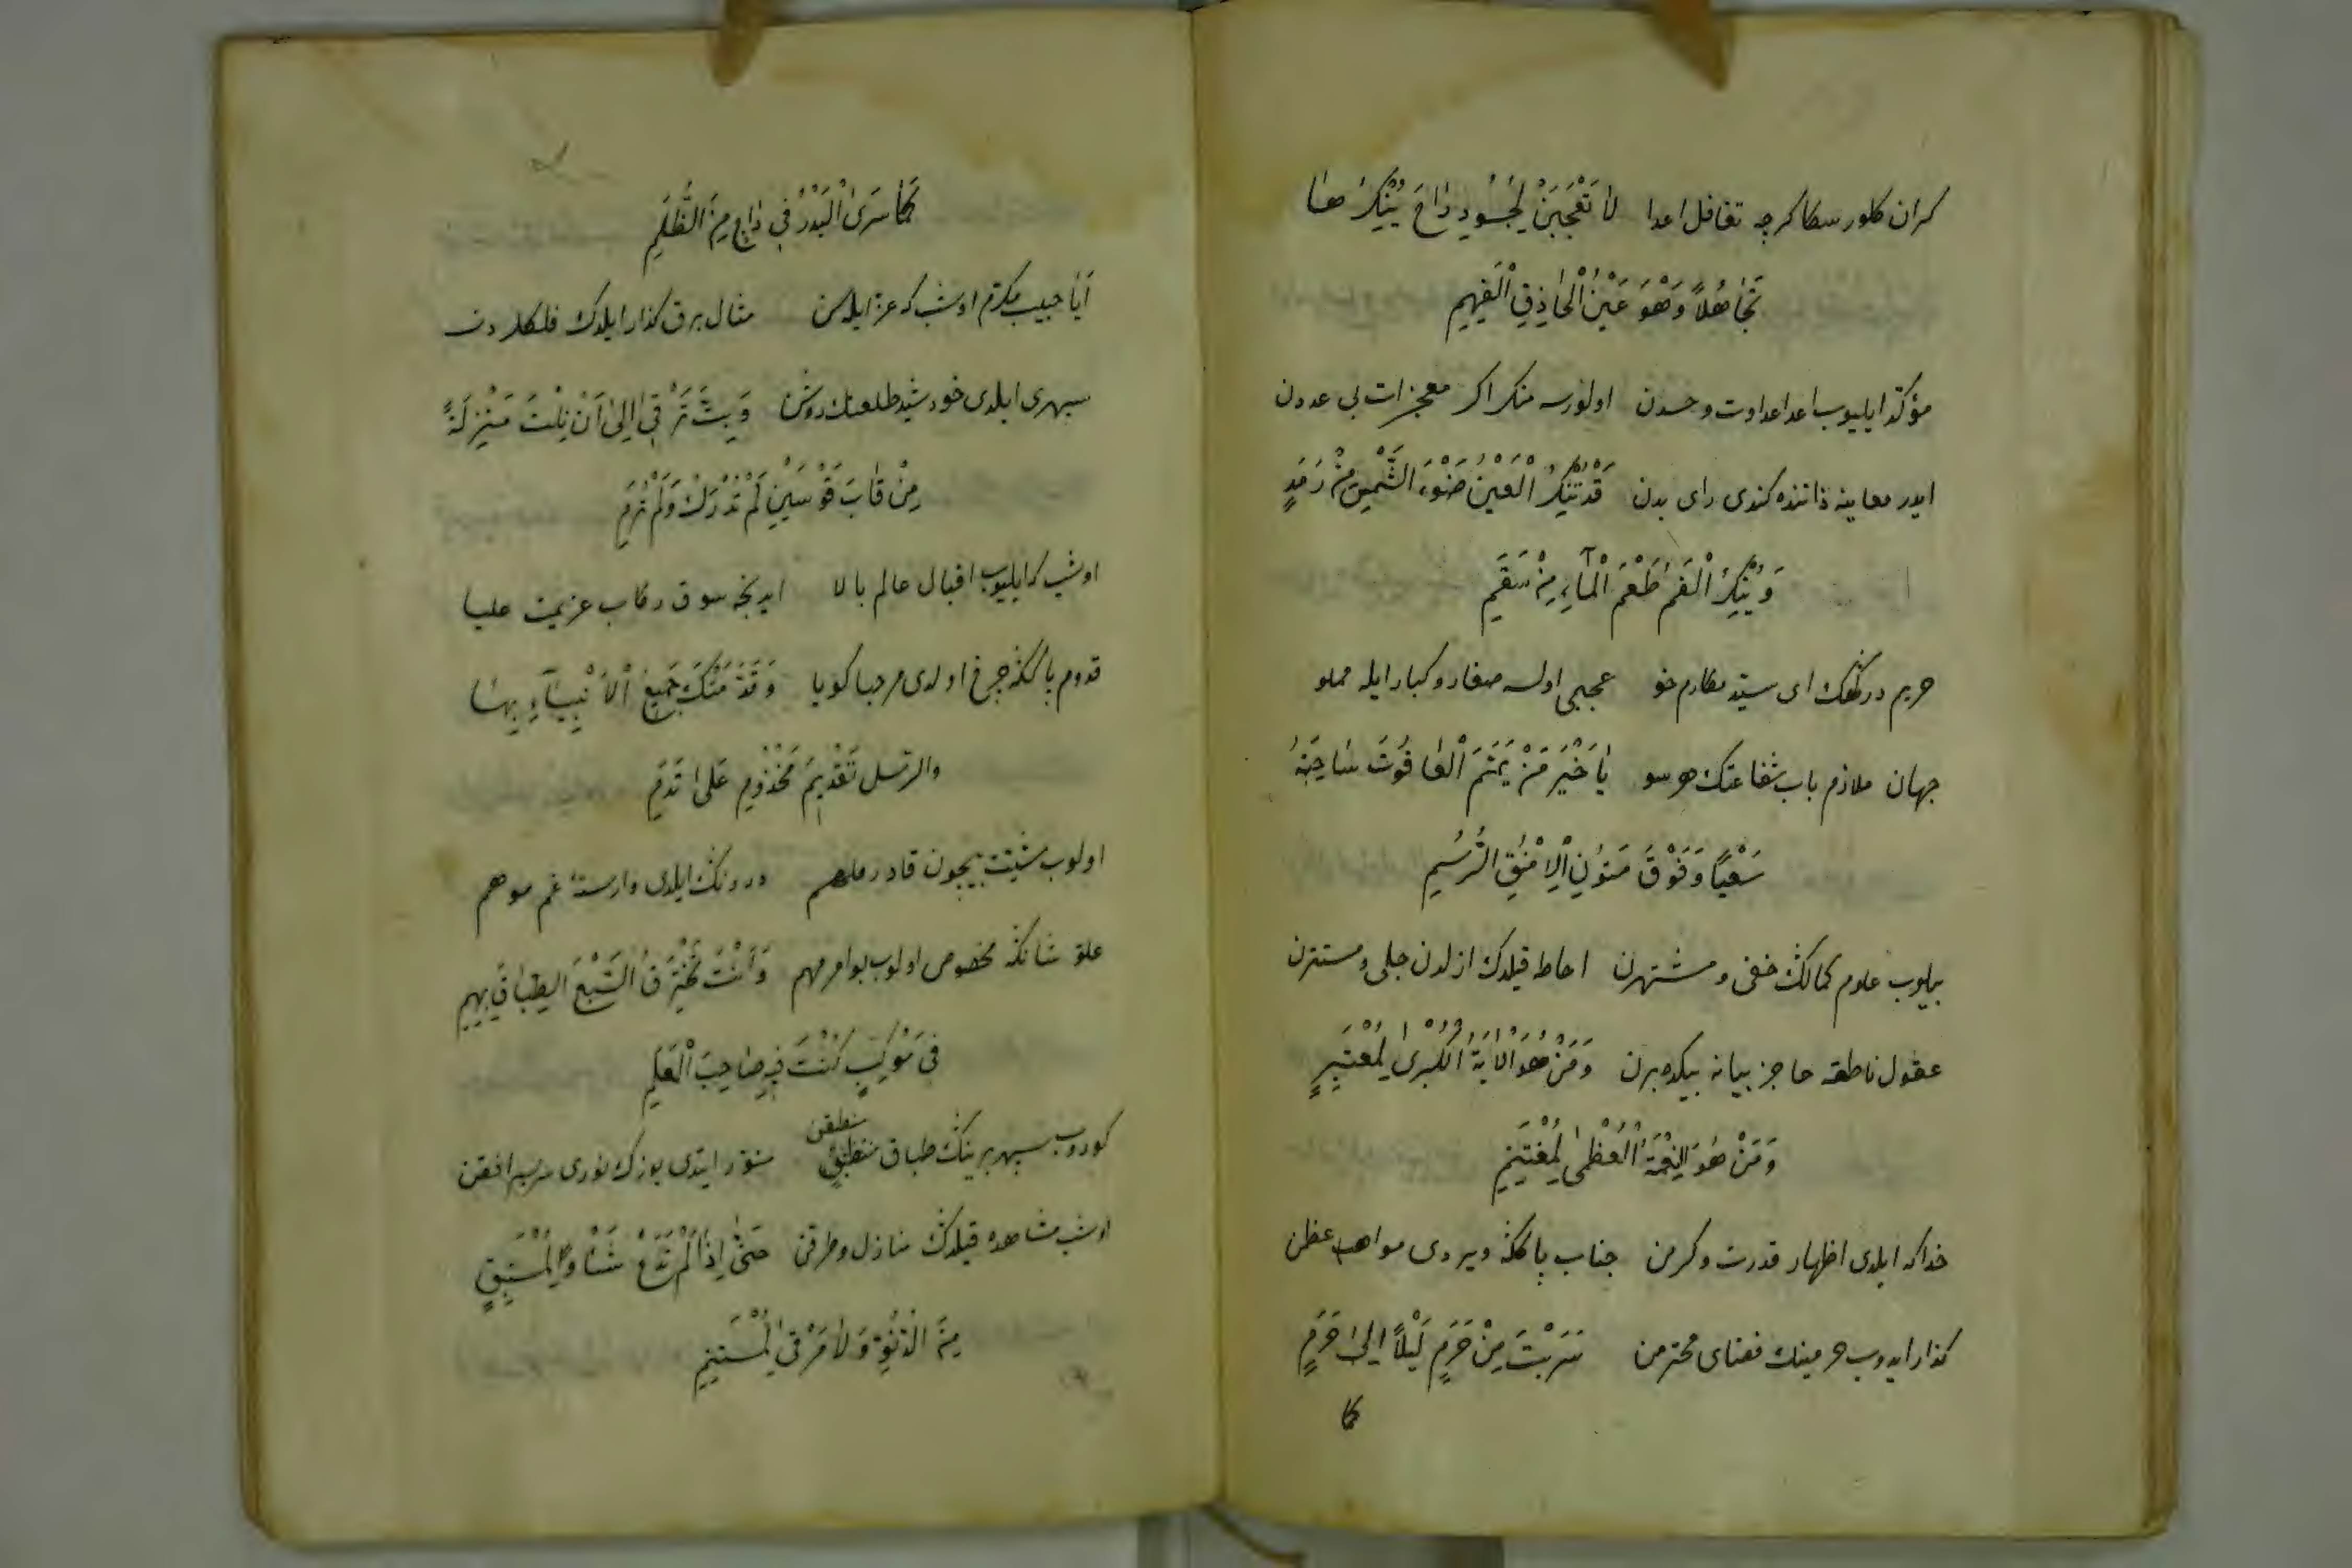 كران كلور سكا كرچه تغافل اعدا لَا تَعْجَبَنْ لِحَسُودٍ رَاحَ يُنْكِرُهَا
تَجَاهُلًا وَهْوَ عَيْنُ الْحَاذِقِ الْفَهِمِ
مؤكد ايليوب اعدا عداوت و حسدن اولورسه منكر اكر معجزات بى عددن
ايدر معاينه ذاتنده كندى راى بدن قَدْ تُنْكِرُ الْعَيْنُ ضَوْءَ الشَّمْسِ مِنْ رَمَدٍ
وَيُنْكِرُ الْفَمُ طَعْمَ الْمَآءِ مِنْ سَقَمِ
حريم دركهك اى سيّد مكارم خو عجبمى اولسه صغار و كبار ايله مملو
جهان ملازم باب شفاعتك هر سو يَا خَيْرَ مَنْ يَمَّمَ الْعَافُوتَ سَاحَتَهُ
سَعْيًا وَفَوْقَ مُتُونِ الْاَيْنُقِ الرُّسُمِ
بيلوب علوم كمالك خفى و مشتهرن احاطه قيلدك ازلدن جلى و مستترن
عقول ناطقه عاجز بيانه بيكده برن وَمَنْ هُوَ الْاٰيَةُ الْكُبْرٰى لِمُعْتَبِرٍ
وَمَنْ هُوَ النِّعْمَةُ الْعُظْمٰى لِمُغْتَنِمِ
خداكه ايلدى اظهار قدرت و كرمن جناب پاككه ويردى مواهب عظمن
كذار ايدوب حرمينك فضاى محترمن سَرَيْتَ مِنْ حَرَمٍ لَيْلًا اِلٰى حَرَمٍ
كما
كَمَا سَرَى الْبَدْرُ فِي دَاجٍ مِنَ الظُّلَمِ
اَيَا حبيب مكرّم اوشب كه عزّ ايله سن مثال برق كذار ايلدك فلكلردن
سپهرى ايلدى خورشيد طلعتك روشن وَبِتَّ تَرْقٰى اِلٰى اَنْ نِلْتَ مَنْزِلَةً
مِنْ قَابَ قَوْسَيْنِ لَمْ تُدْرَكْ وَلَمْ تُرَمِ
اوشب كه ايليوب اقبال عالم بالا ايديجه سوق ركاب عزيمت عليا
قدوم پاككه چرخ اولدى مرحبا كويا وَقَدَّمَتْكَ جَمِيعُ الْاَنْبِيَآءِ بِهَا
والرسل تَقْدِيمَ مَخْدُومٍ عَلٰى خَدَمِ
اولوب مشيّت بيچون قادر ملهم درونك ايلدى وارسته غم موهم
علوّ شانكه مخصوص اولوب بو امر مهم وَاَنْتَ تَخْتَرِقُ السَّبْعَ الطِّبَاقَ بِهِمِ
فِي مَوْكِبٍ كُنْتَ فِيهِ صَاحِبَ الْعَلَمِ
منطبقن
كوروب سپهر برينك طباق منطبقٍ منوّر ايتدى يوزك نورى سربسر افقن
اوشب مشاهده قيلدك منازل و طرقن حَتّٰى اِذَا لَمْ تَدَعْ شَأْوًا لِمُسْتَبِقٍ
مِنَ الدُّنُوِّ وَلَا مَرْقًى لِمُسْتَنِمِ